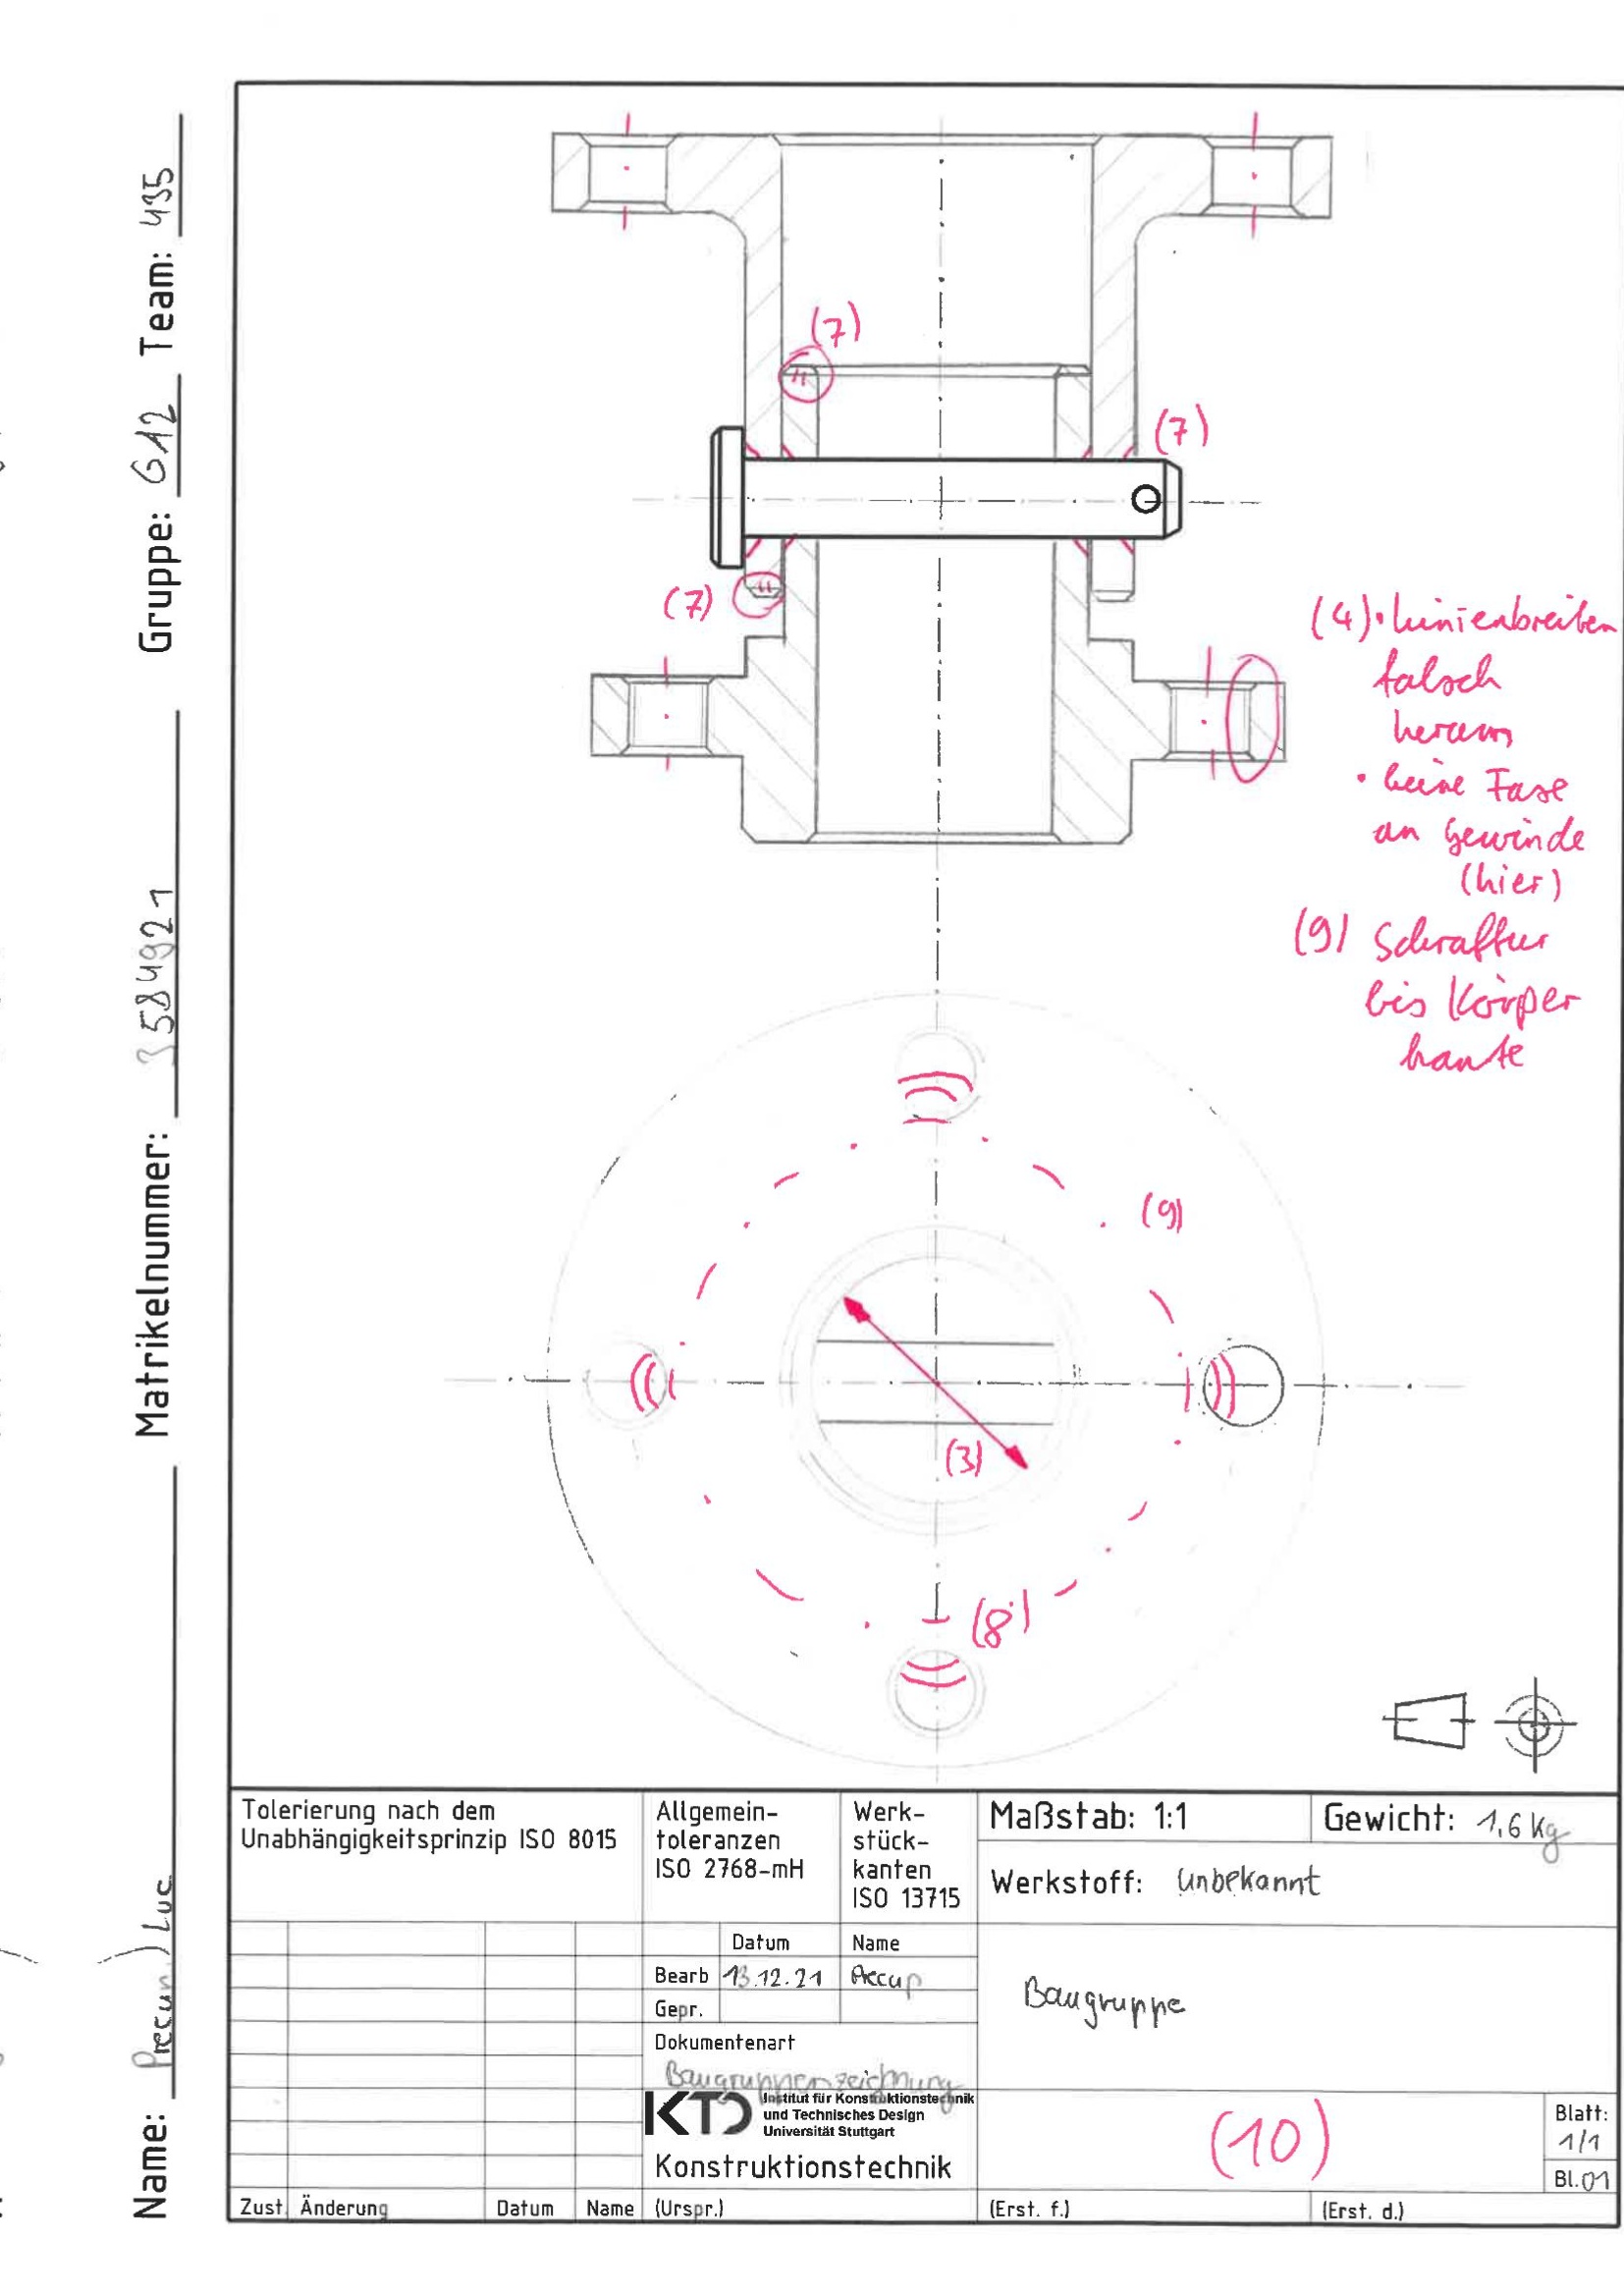 Name: Luc
Matrikelnummer: 3584921
Gruppe: G12 Team: 435
(7)
(7)
(7)
(4) • Linienbreiten
falsch
herum
• keine Fase
an Gewinde
(hier)
(9) Schraffur
bis Körper
kante
(9)
(3)
(8)
Tolerierung nach dem
Unabhängigkeitsprinzip ISO 8015
Allgemein-
toleranzen
ISO 2768-mH
Werk-
stück-
kanten
ISO 13715
Maßstab: 1:1
Gewicht: 1,6 Kg
Werkstoff: unbekannt
Datum Name
Bearb 13.12.21
Gepr.
Dokumentenart
Baugruppenzeichnung
Baugruppe
KTD Institut für Konstruktionstechnik
und Technisches Design
Universität Stuttgart
Konstruktionstechnik
(10)
Blatt:
1/1
Bl.01
Zust. Änderung Datum Name (Urspr.) (Erst. f.) (Erst. d.)